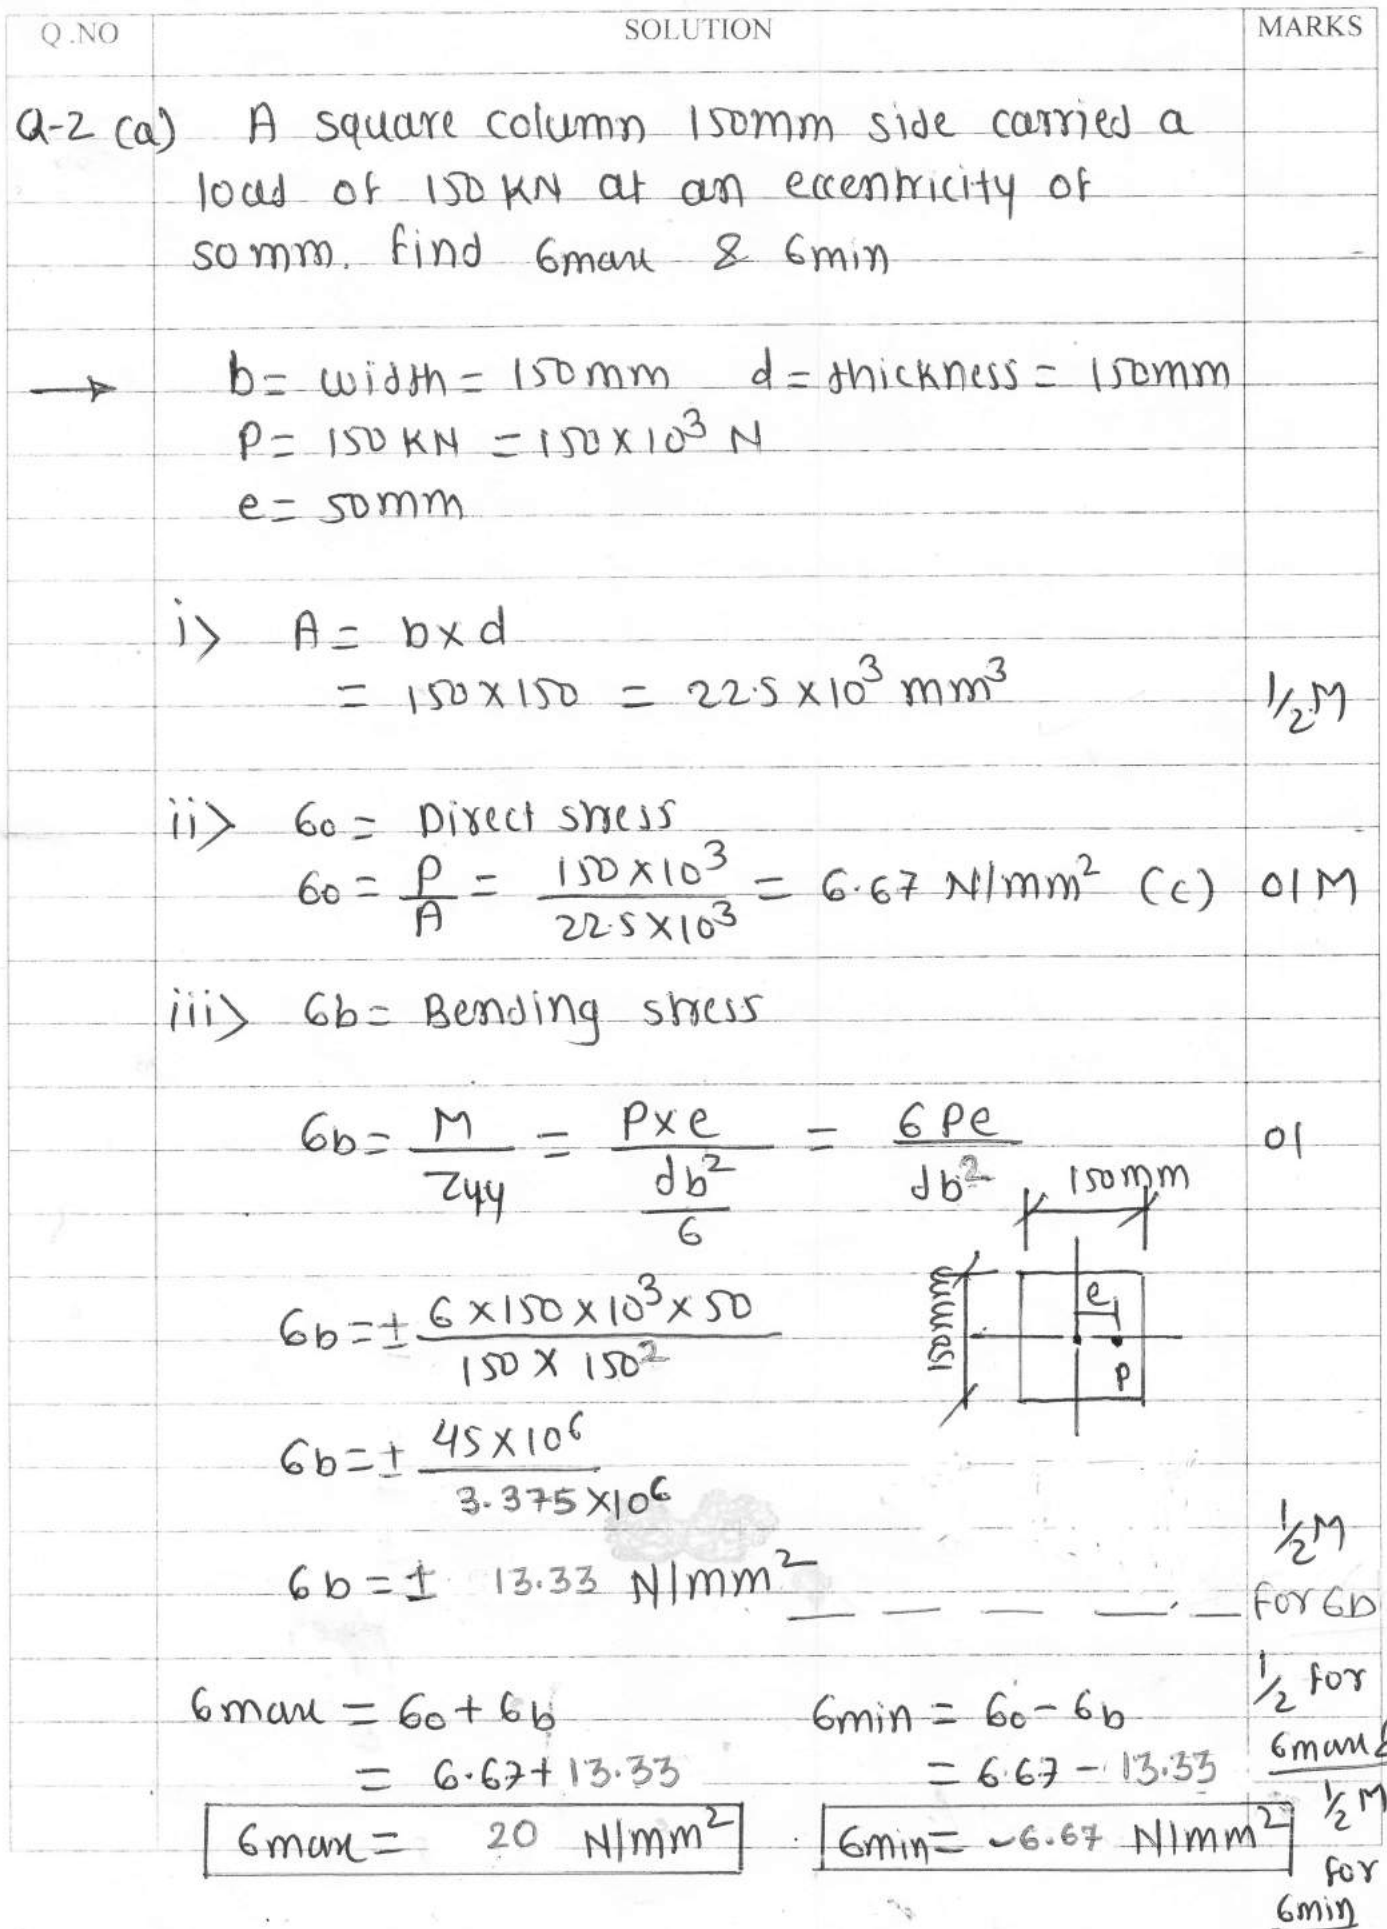 Q.NO SOLUTION MARKS
Q-2 (a) A square column 150mm side carried a
load of 150 KN at an eccentricity of
50mm. find σmax & σmin
→ b = width = 150mm d = thickness = 150mm
P = 150 KN = 150 × 10³ N
e = 50mm
i> A = b × d
= 150 × 150 = 22.5 × 10³ mm³ 1/2 M
ii> σo = Direct stress
σo = P/A = 150 × 10³ / 22.5 × 10³ = 6.67 N/mm² (c) 01 M
iii> σb = Bending stress
σb = M/Zyy = P×e / (db²/6) = 6Pe/db² 01
150mm
σb = ± 6 × 150 × 10³ × 50 / 150 × 150²
150mm
e
P
σb = ± 45 × 10⁶ / 3.375 × 10⁶
σb = ± 13.33 N/mm² 1/2 M
for σb
σmax = σo + σb σmin = σo - σb 1/2 for
= 6.67 + 13.33 = 6.67 - 13.33 σmax &
σmax = 20 N/mm² σmin = -6.67 N/mm² 1/2 M
for
σmin